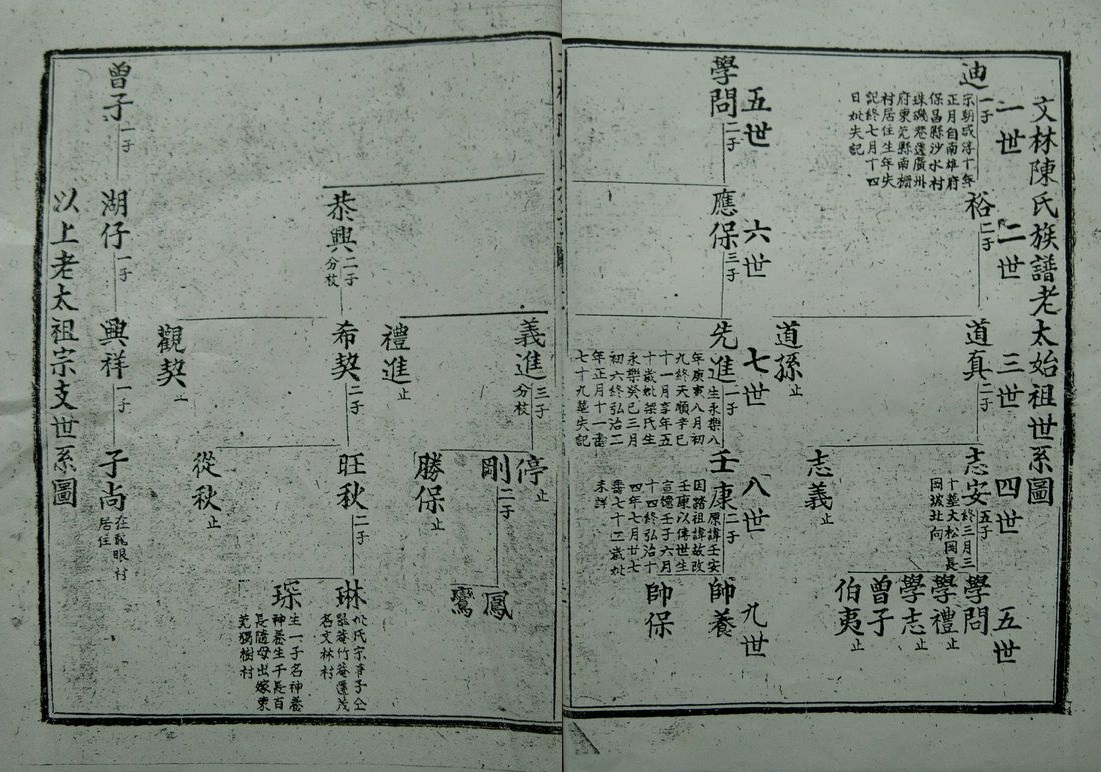 文林陳氏族譜老太始祖世系圖
一世
二世
三世
四世
五世
迪
一子
宗朝咸淳十年
正月自南雄府
保昌縣沙水村
珠璣巷遷廣州
府東莞縣南柵
村居住生年失
記終七月十四
日妣失記
裕
二子
道真
二子
道孫
止
志安
五子
終三月三
十墓大松岡長
岡坡北向
志義
止
學問
學禮
止
學志
止
曾子
伯夷
止
五世
六世
七世
八世
九世
學問
二子
應保
三子
先進
一子
生永樂八
年庚寅八月初
九終天順辛巳
十一月享年五
十歲妣梁氏生
永樂癸巳三月
初六終弘治二
年正月十一壽
七十九墓失記
壬康
二子
原諱壬安
因諱祖諱故改
壬康以傳世生
宣德壬子六月
十四終弘治十
四年七月廿七
壽七十二歲妣
未詳
師養
師保
義進
三子
分枝
禮進
止
停
止
剛
二子
勝保
止
鳳
鸞
恭興
二子
分枝
希契
二子
觀契
止
旺秋
二子
從秋
止
琳
妣氏宗章子仝
遷茂
名文林村
琛
生一子名神養
神養生千長百
長隨母出嫁東
莞獨樹村
曾子
一子
湖仔
一子
興祥
一子
子尚
在龍眼村
居住
以上老太祖宗支世系圖